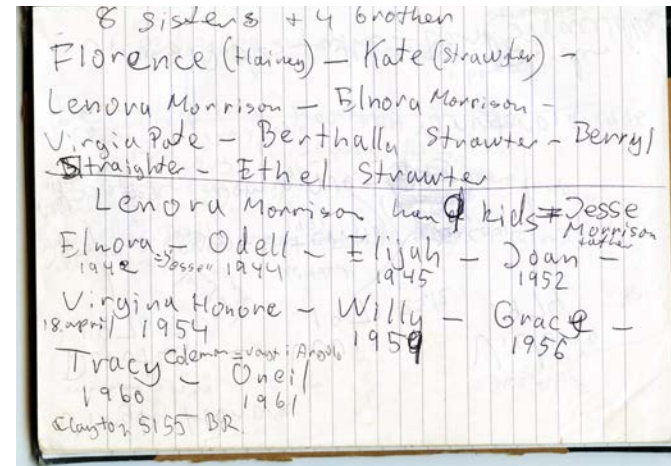 8 sisters + 4 brother
Florence (Hainey) – Kate (Strawter) –
Lenora Morrison – Elnora Morrison –
Virgia Pate – Berthally Strawter – Berryl
Straighter – Ethel Strawter
Lenora Morrison han 9 kids = Jesse
Morrison
father
Elnora – Odell – Elijah – Joan –
1942 = Jessell 1944 1945 1952
Virgina Honore – Willy – Grace –
18. april 1954 1959 1956
Tracy Coleman = vært i Angola
– Oneil
1960 1961
Clayton 5155 BR